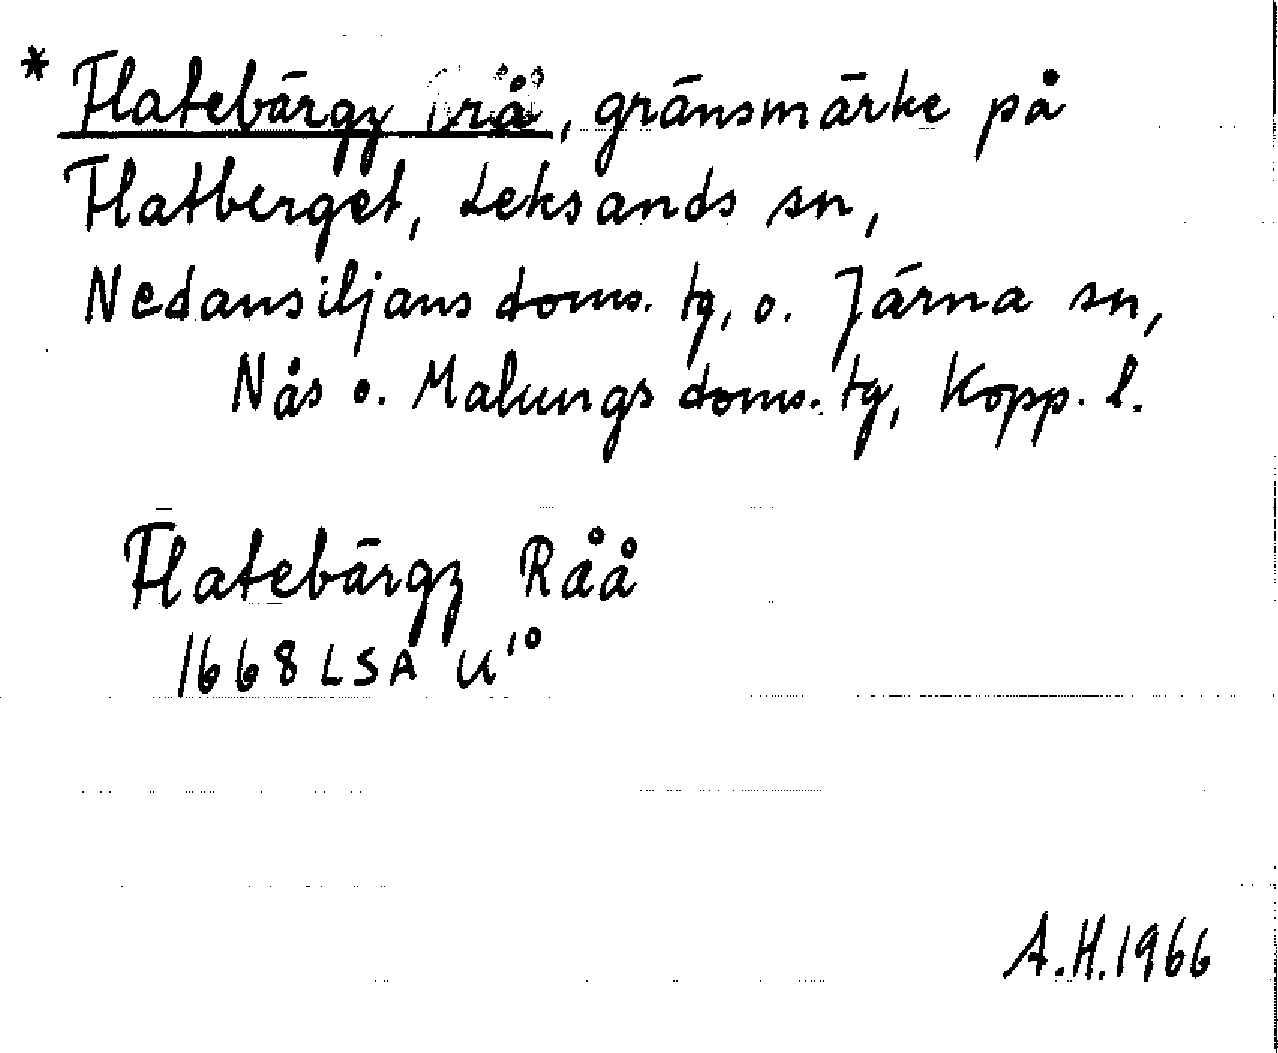 * Flatebärgz rå, gränsmärke på
Flatberget, Leksands sn,
Nedansiljans doms. tg, o. Järna sn,
Nås o. Malungs doms. tg, Kopp. l.
Flatebärgz Råå
1668 LSA U'°
A.H. 1966